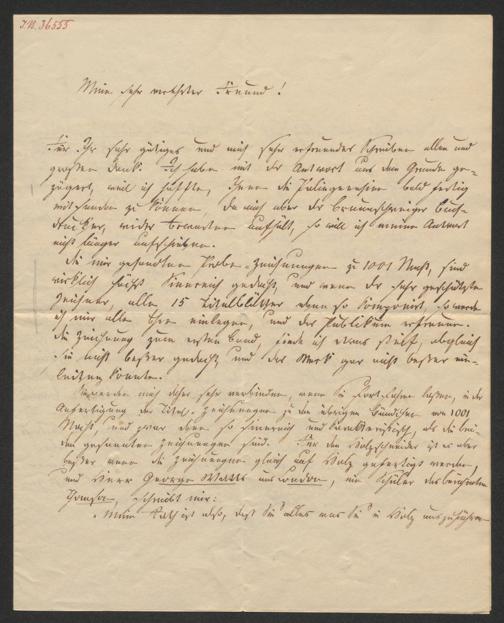 J.N. 36555
Mein sehr verehrter Freund!
Für Ihr sehr gütiges und mich sehr erfreuendes Schreiben allen und
großen Dank. Ich habe mit der Antwort aus dem Grunde ge-
zögert, weil ich hoffte, Ihnen die bald fertig
mitsenden zu können, da mich aber der Braunschweiger Buch-
drucker, wider Erwarten aufhält, so will ich meine Antwort
nicht länger aufschieben.
Die mir gesandten Probe-Zeichnungen zu 1001 Nacht, sind
wirklich höchst sinnreich gedacht, und wenn der sehr geschätzte
Zeichner, alle 15 Titelblätter denn so componirt, so werde
ich mir alle Ehre einlegen, und das Publikum erfreuen.
Die Zeichnung zum ersten Band, finde ich etwas steif, obgleich
sie nicht besser gedacht und das Werk gar nicht besser ein-
leiten konnte.
mich daher sehr verbinden, wenn Sie fortfahren lassen, in der
Anfertigung der Titel-Zeichnungen zu den übrigen Bändchen von 1001
Nacht, und zwar eben so sinnreich und charakteristisch, als die bei-
den gesandten Zeichnungen sind. Für den Holzschneider ist es aber
besser wenn die Zeichnungen gleich auf Holz gefertigt werden,
und Herr George Watts aus London, ein Schüler des berühmten
schreibt mir:
"Mein Rath ist also, daß Sie alles was Sie in Holz auszuführen